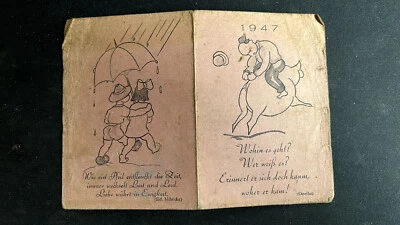 Wie ein Pfeil entflieht die Zeit,
immer wechselt Lust und Leid.
Liebe währt in Ewigkeit.
1947
Wohin es geht?
Wer weiß es?
Erinnert er sich doch kaum,
woher er kam!
(Goethe)